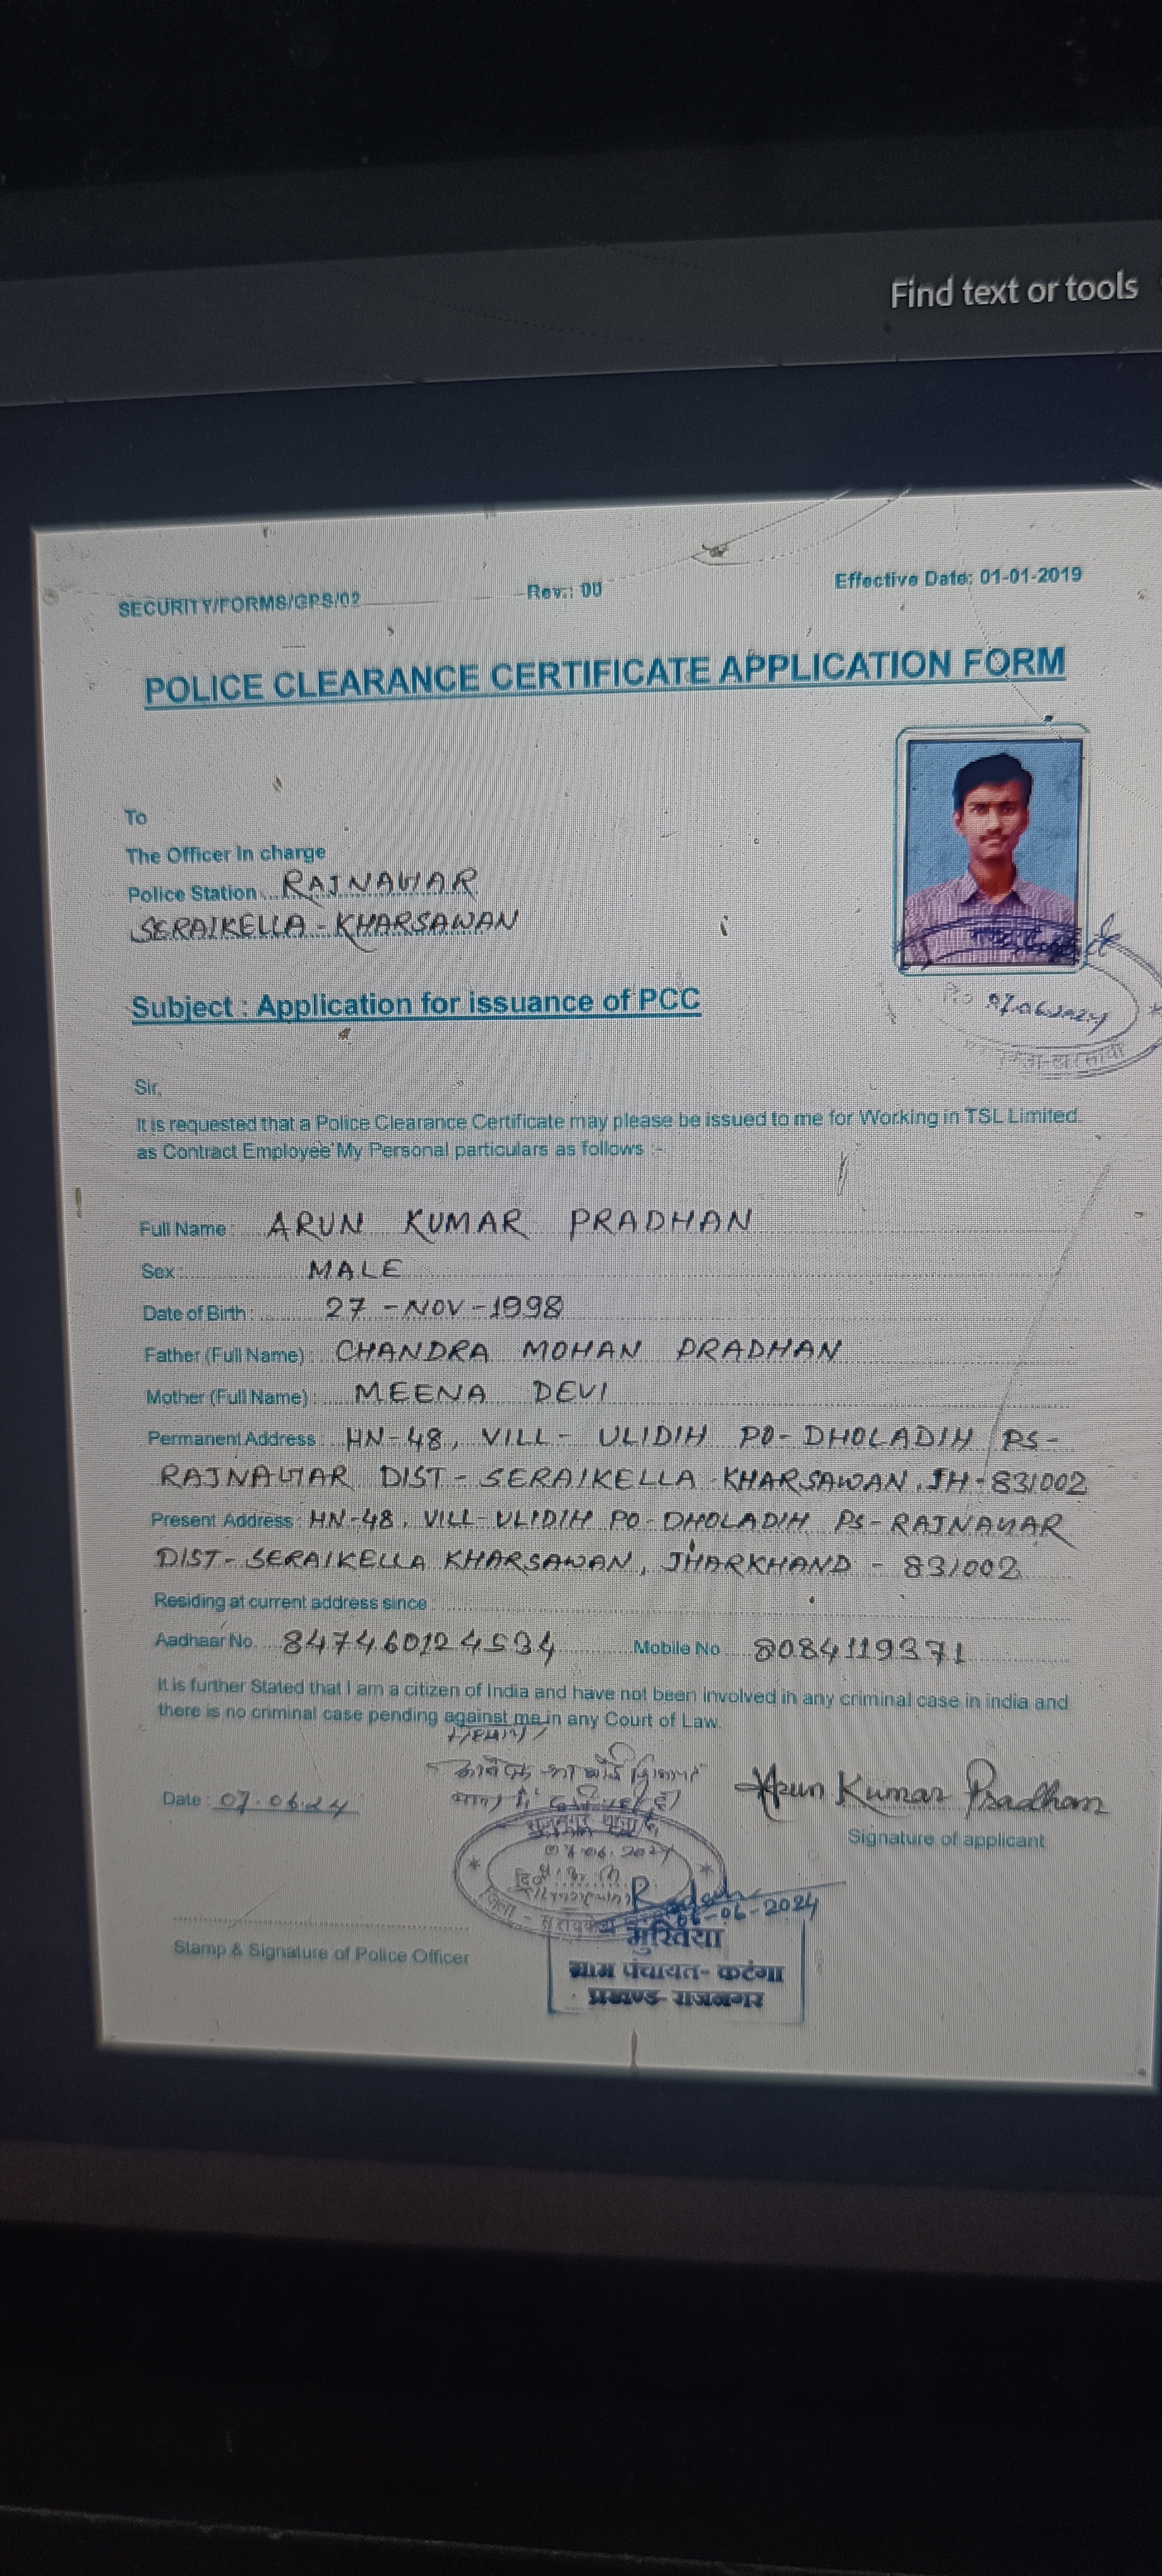 Find text or tools
SECURITY/FORMS/GPS/02 Rev.: 00 Effective Date: 01-01-2019
POLICE CLEARANCE CERTIFICATE APPLICATION FORM
To
The Officer In charge
Police Station RAJNAGAR
SERAIKELLA - KHARSAWAN
07.06.2024
Subject : Application for issuance of PCC
Sir,
It is requested that a Police Clearance Certificate may please be issued to me for Working in TSL Limited.
as Contract Employee My Personal particulars as follows :-
Full Name : ARUN KUMAR PRADHAN
Sex : MALE
Date of Birth : 27 - NOV - 1998
Father (Full Name) : CHANDRA MOHAN PRADHAN
Mother (Full Name) : MEENA DEVI
Permanent Address : HN-48, VILL- ULIDIH PO- DHOLADIH PS-
RAJNAGAR DIST- SERAIKELLA-KHARSAWAN, JH-831002
Present Address : HN-48, VILL-ULIDIH PO-DHOLADIH PS-RAJNAGAR
DIST- SERAIKELLA KHARSAWAN, JHARKHAND - 831002
Residing at current address since :
Aadhaar No. 847460124534 Mobile No 8084119371
It is further Stated that I am a citizen of India and have not been involved in any criminal case in india and
there is no criminal case pending against me in any Court of Law.
Date : 07.06.24 Arun Kumar Pradhan
Signature of applicant
06-06-2024
मुखिया
Stamp & Signature of Police Officer
ग्राम पंचायत- कटंगा
प्रखण्ड- राजनगर